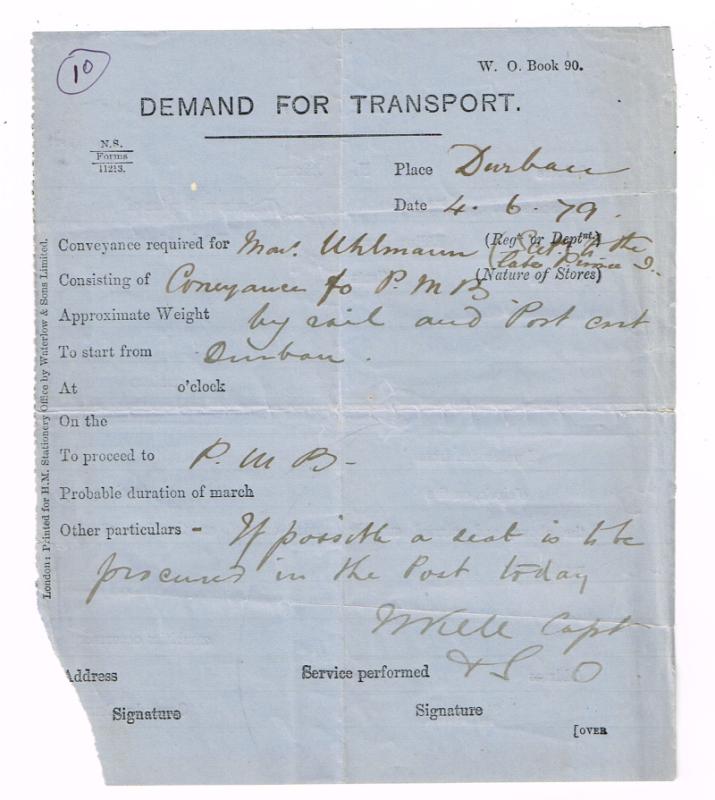 10
W. O. Book 90.
DEMAND FOR TRANSPORT.
N.S.
Forms
11213.
Place Durban
Date 4. 6. 79.
Conveyance required for Uhlmann (Regt. or Deptnt.)
the
late Prince I.
Consisting of Coneyance to P. M B (Nature of Stores)
Approximate Weight by rail and Post cart
To start from Durban.
At o'clock
On the
To proceed to P. M B -
Probable duration of march
Other particulars - If possible a seat is to be
procured in the Post today
Capt
Address Service performed
Signature Signature
[OVER
London: Printed for H.M. Stationery Office by Waterlow & Sons Limited.